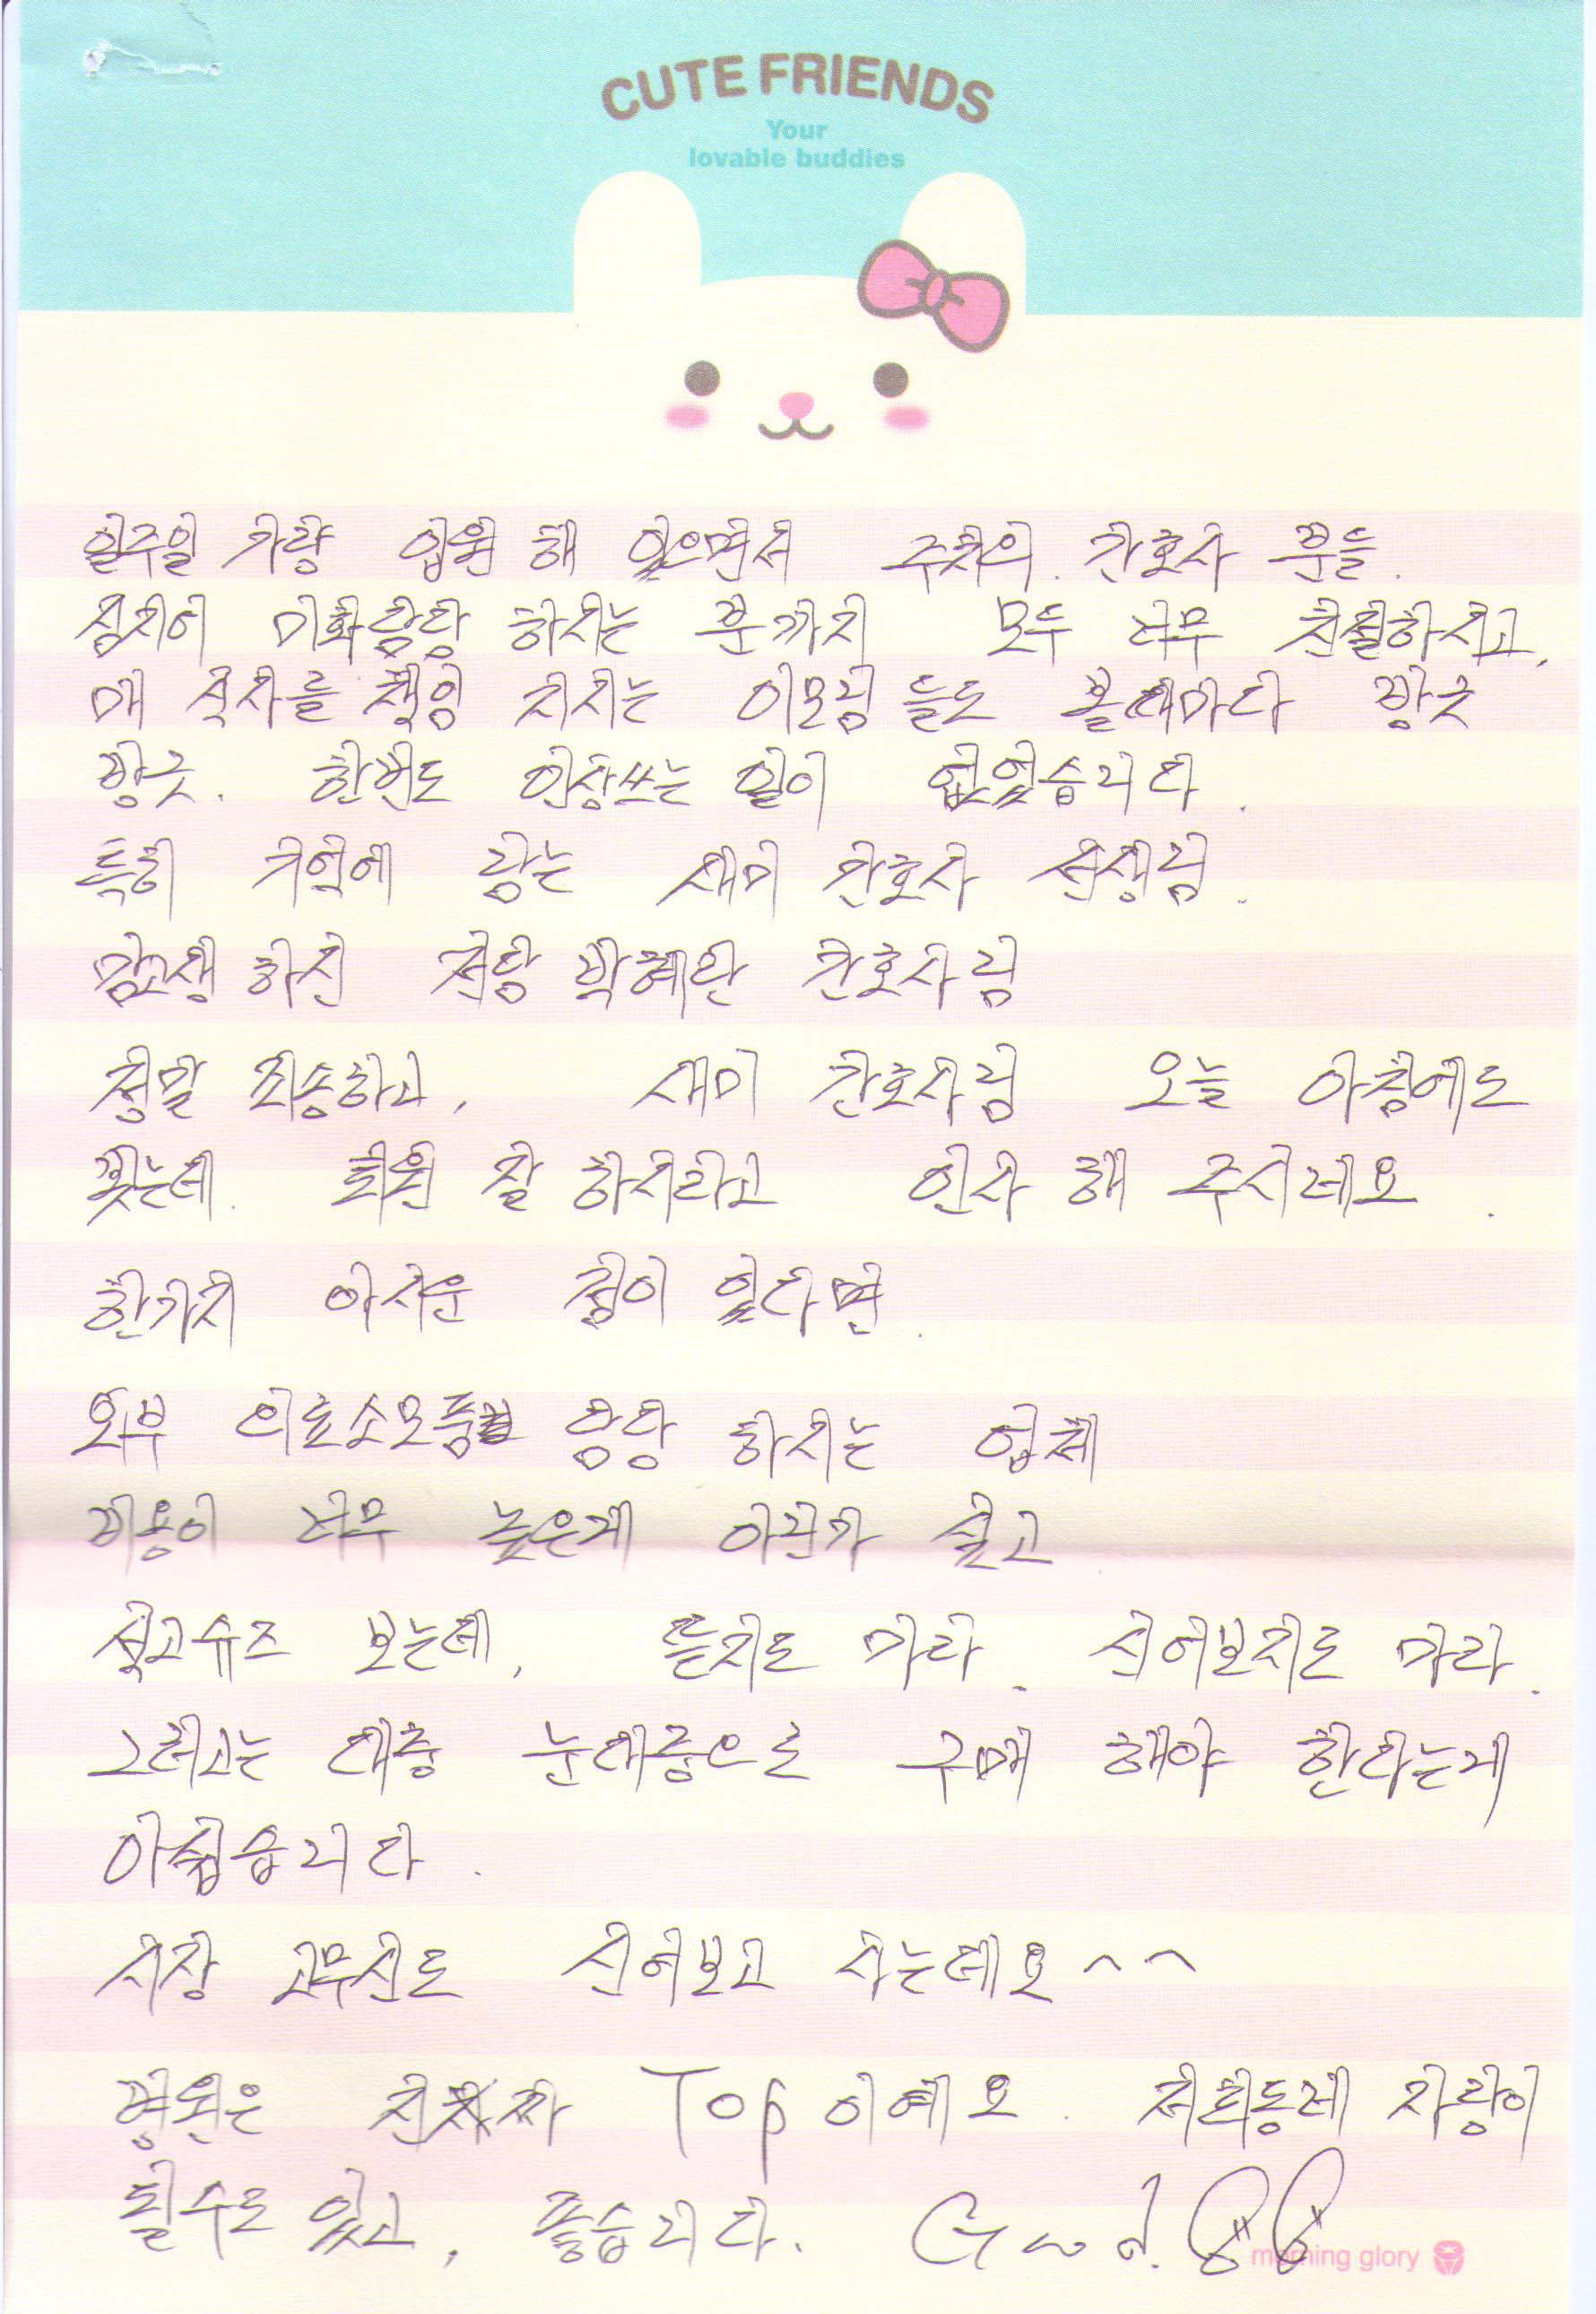 CUTE FRIENDS
Your
lovable buddies
일주일 가량 입원 해 있으면서 주치의. 간호사 분들.
심지어 미화담당 하시는 분까지 모두 너무 친절하시고,
매 식사를 책임 지시는 이모님들도 볼때마다 방긋
방긋. 한번도 인상쓰는 일이 없었습니다.
특히 기억에 남는 새미 간호사 선생님.
맘고생 하신 전담 박혜란 간호사님
정말 죄송하고, 새미 간호사님 오늘 아침에도
뵀는데. 퇴원 잘 하시라고 인사 해 주시네요.
한가지 아쉬운 점이 있다면.
외부 의료소모품 담당 하시는 업체
비용이 너무 높은게 아닌가 싶고
석고슈즈 보는데, 뜯지도 마라. 신어보지도 마라.
그러고는 대충 눈대중으로 구매 해야 한다는게
아쉽습니다.
시장 고무신도 신어보고 사는데요^^
병원은 진짜 Top이예요. 저희동네 자랑이
될수도 있고, 좋습니다. Good.
morning glory